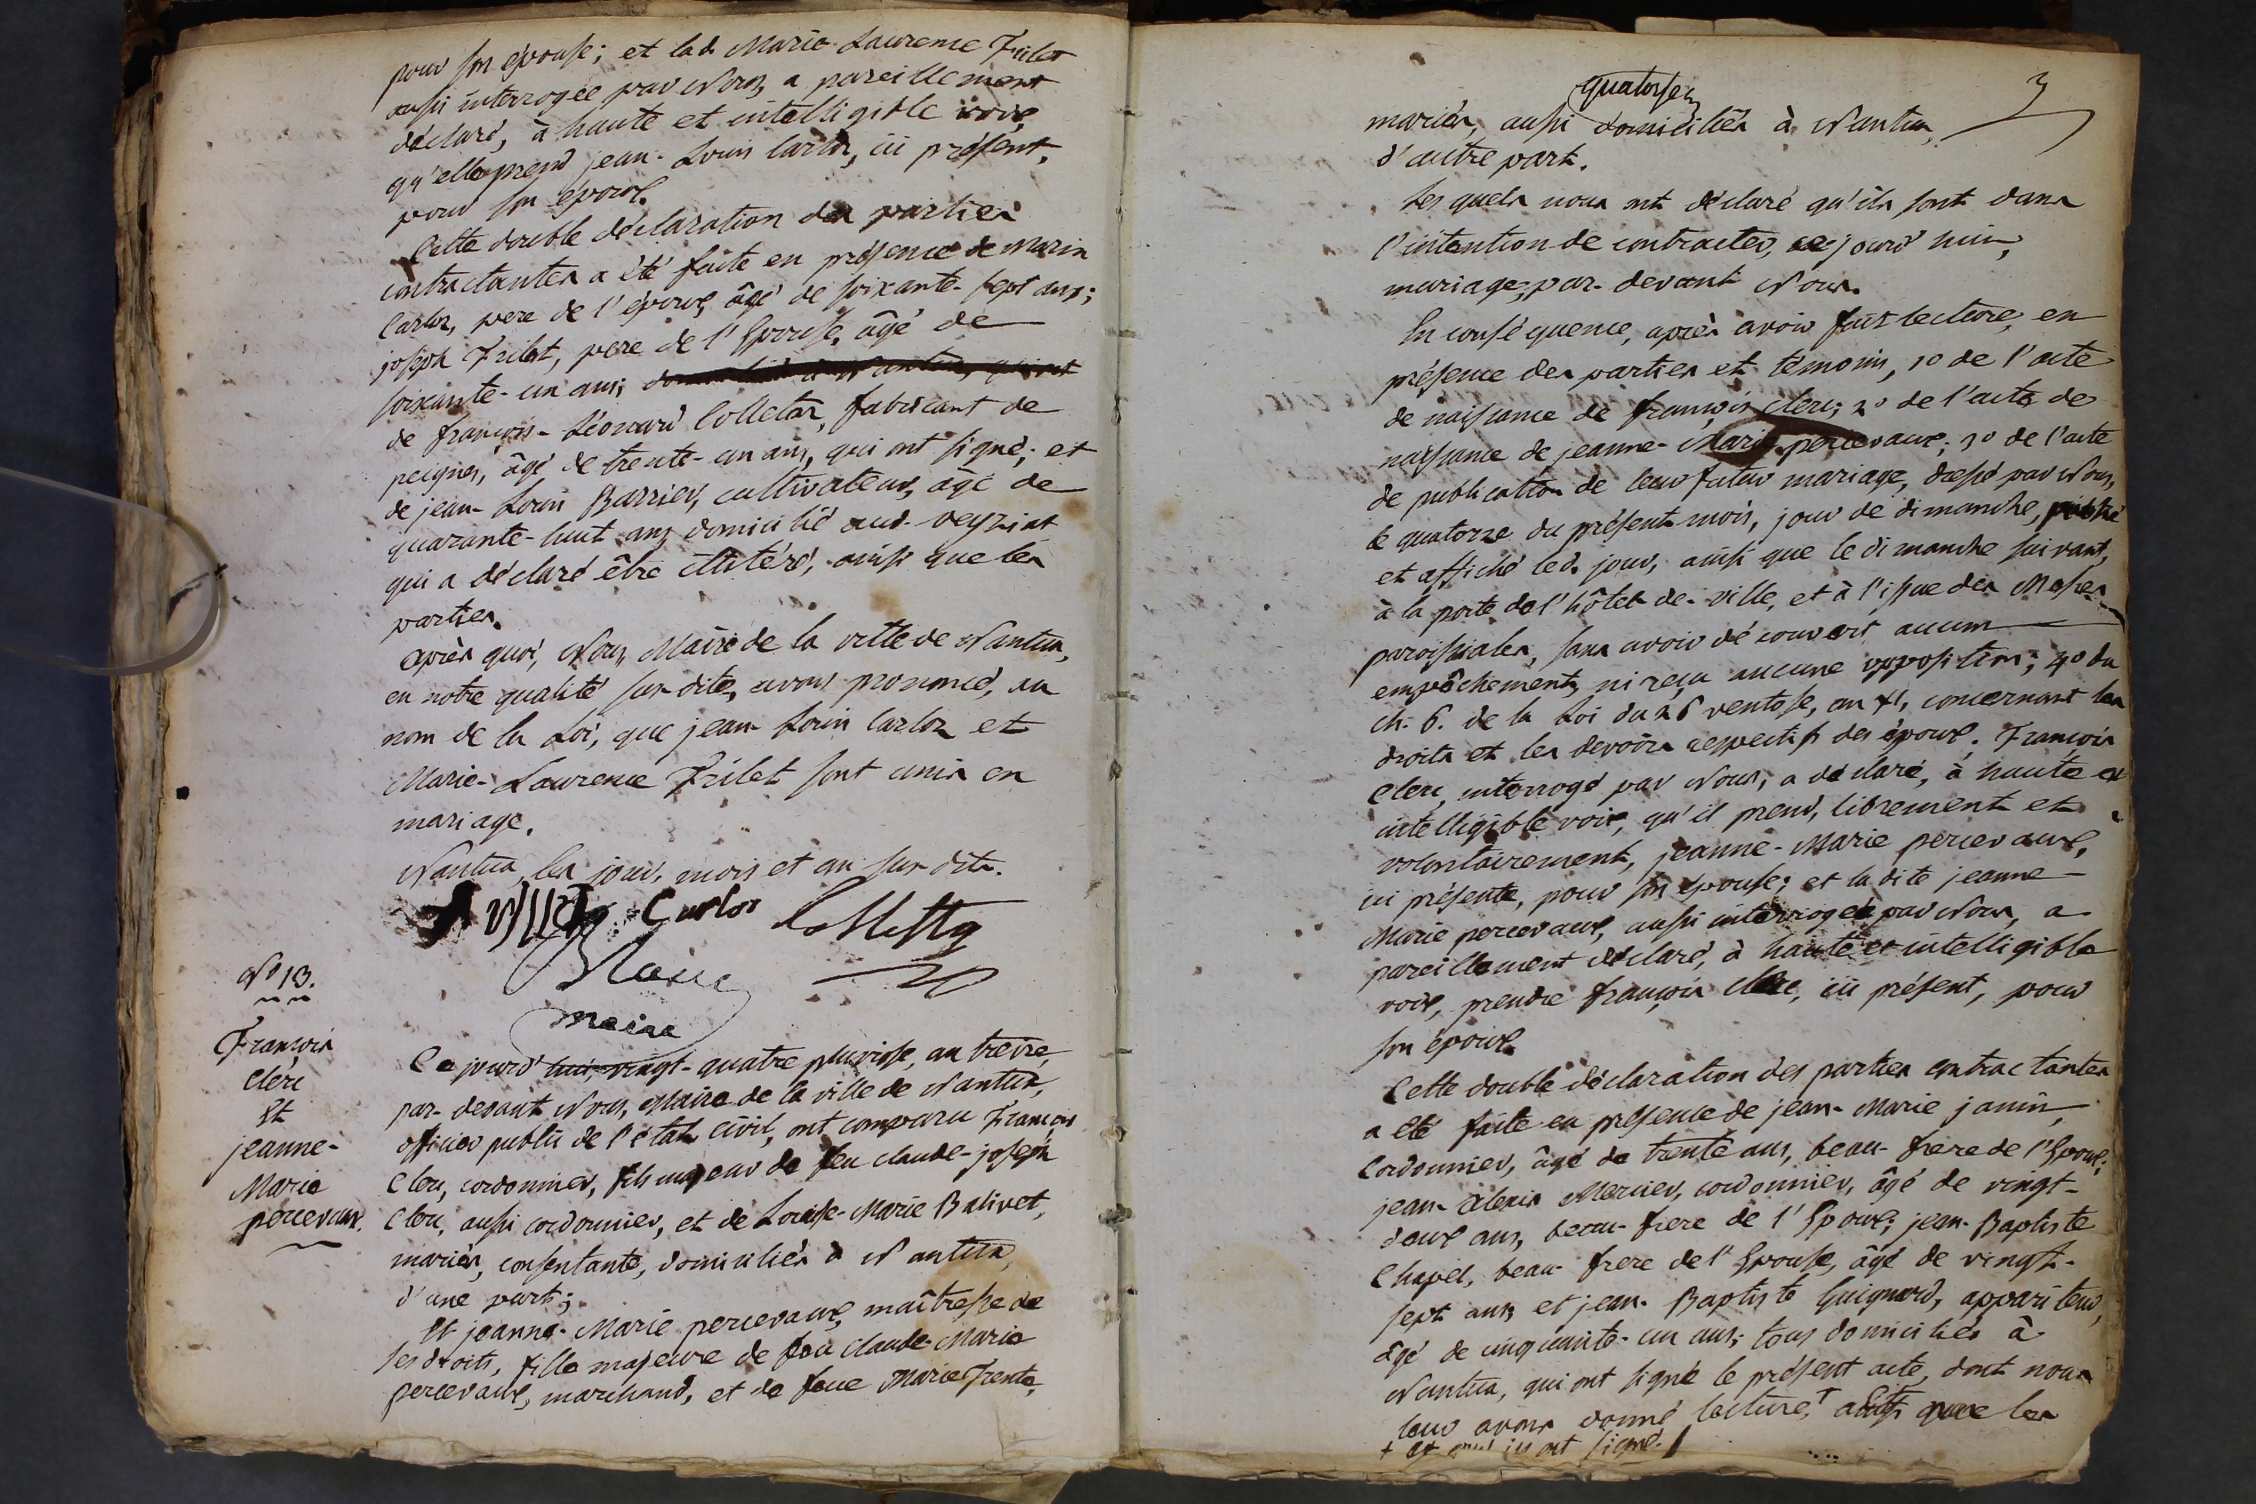 pour son épouse; et lad. Marie Laurence Frilet
aussi interrogée par Nous, a pareillement
déclaré, à haute et intelligible voix
qu'elle prend jean-Louis Carloz, ici présent,
pour son époux.
Cette double déclaration des parties
contractantes a été faite en présence de Marin
Carloz, pere de l'époux, âgé de soixante-sept ans;
joseph Frilet, pere de l'Epouse, âgé de
soixante-un ans;
de françois-Léonard Colletta, fabricant de
peignes, âgé de trente-un ans, qui ont signé; et
de jean-Louis Barrier, cultivateur, âgé de
quarante-huit ans, domicilié aud. veyziat
qui a déclaré être illitéré, ainsi que les
parties.
après quoi, Nous, Maire de la ville de Nantua,
en notre qualité sus-dite, avons prononcé, au
nom de la Loi, que jean-Louis Carloz et
Marie-Laurence Frilet sont unis en
mariage.
Nantua, les jour, mois et an sus-dits.
Carlos Colletta
maire
N° 13.
François
Clerc
Et
jeanne-
Marie
percevaux.
Ce jourd'hui, vingt-quatre pluviose, an treize,
par-devant Nous, Maire de la ville de Nantua,
officier public de l'état civil, ont comparu François
Clerc, cordonnier, fils majeur de feu claude-joseph
Clerc, aussi cordonnier, et de Louise-Marie Balivet,
mariés, consentante, domiciliés à Nantua,
d'une part;
Et jeanne-Marie percevaux, maîtresse de
ses droits, fille majeure de feu claude-Marie
percevaux, marchand, et de feue Marie Trente,
quatorse
3
mariés, aussi domiciliés à Nantua,
d'autre part.
Les quels nous ont déclaré qu'ils sont dans
l'intention de contracter, ce jourd'hui,
mariage, par-devant Nous.
En conséquence, après avoir fait lecture, en
présence des parties et témoins, 1° de l'acte
de naissance de françois Clerc; 2° de l'acte de
naissance de jeanne-Marie percevaux; 3° de l'acte
de publication de leur futur mariage, dressé par Nous,
le quatorze du présent mois, jour de dimanche, publié
et affiché led. jour, ainsi que le dimanche suivant,
à la porte de l'hôtel-de-ville, et à l'issue des Messes
paroissiales, sans avoir découvert aucun
empêchement, ni reçu aucune opposition; 4° du
ch. 6. de la Loi du 26 ventose, an XI, concernant les
droits et les devoirs respectifs des époux. François
Clerc, interrogé par Nous, a déclaré, à haute et
intelligible voix, qu'il prend, librement et
volontairement, jeanne-Marie percevaux,
ici présente, pour son épouse; et la dite jeanne-
Marie percevaux, aussi interrogée par Nous, a
pareillement déclaré, à haute et intelligible
voix, prendre françois Clerc, ici présent, pour
son époux.
Cette double déclaration des parties contractantes
a été faite en présence de jean-Marie janin,
Cordonnier, âgé de trente ans, beau-frere de l'Epoux;
jean-Alexis Mercier, cordonnier, âgé de vingt-
deux ans, beau-frere de l'Epoux; jean-Baptiste
Chapel, beau-frere de l'Epouse, âgé de vingt-
sept ans, et jean-Baptiste Guignard, appariteur,
âgé de cinquante-un ans; tous domiciliés à
Nantua, qui ont signé le présent acte, dont nous
leur avons donné lecture, + ainsi que les
+ et ont signé.